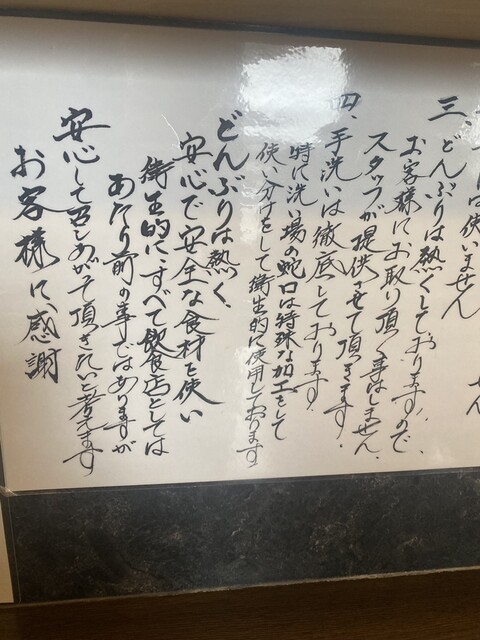 は使いません
三、どんぶりは熱くしております。
お客様にお取り頂く事はしません、
スタッフが提供させて頂きます！
四、手洗いは徹底しております！
特に洗い場の蛇口は特殊な加工をして
使い分けをして衛生的に使用しております
どんぶりは熱く、
安心で安全な食材を使い
衛生的に、すべて飲食店としては
あたり前の事ではありますが
安心して召しあがって頂きたいと考えます
お客様に、感謝